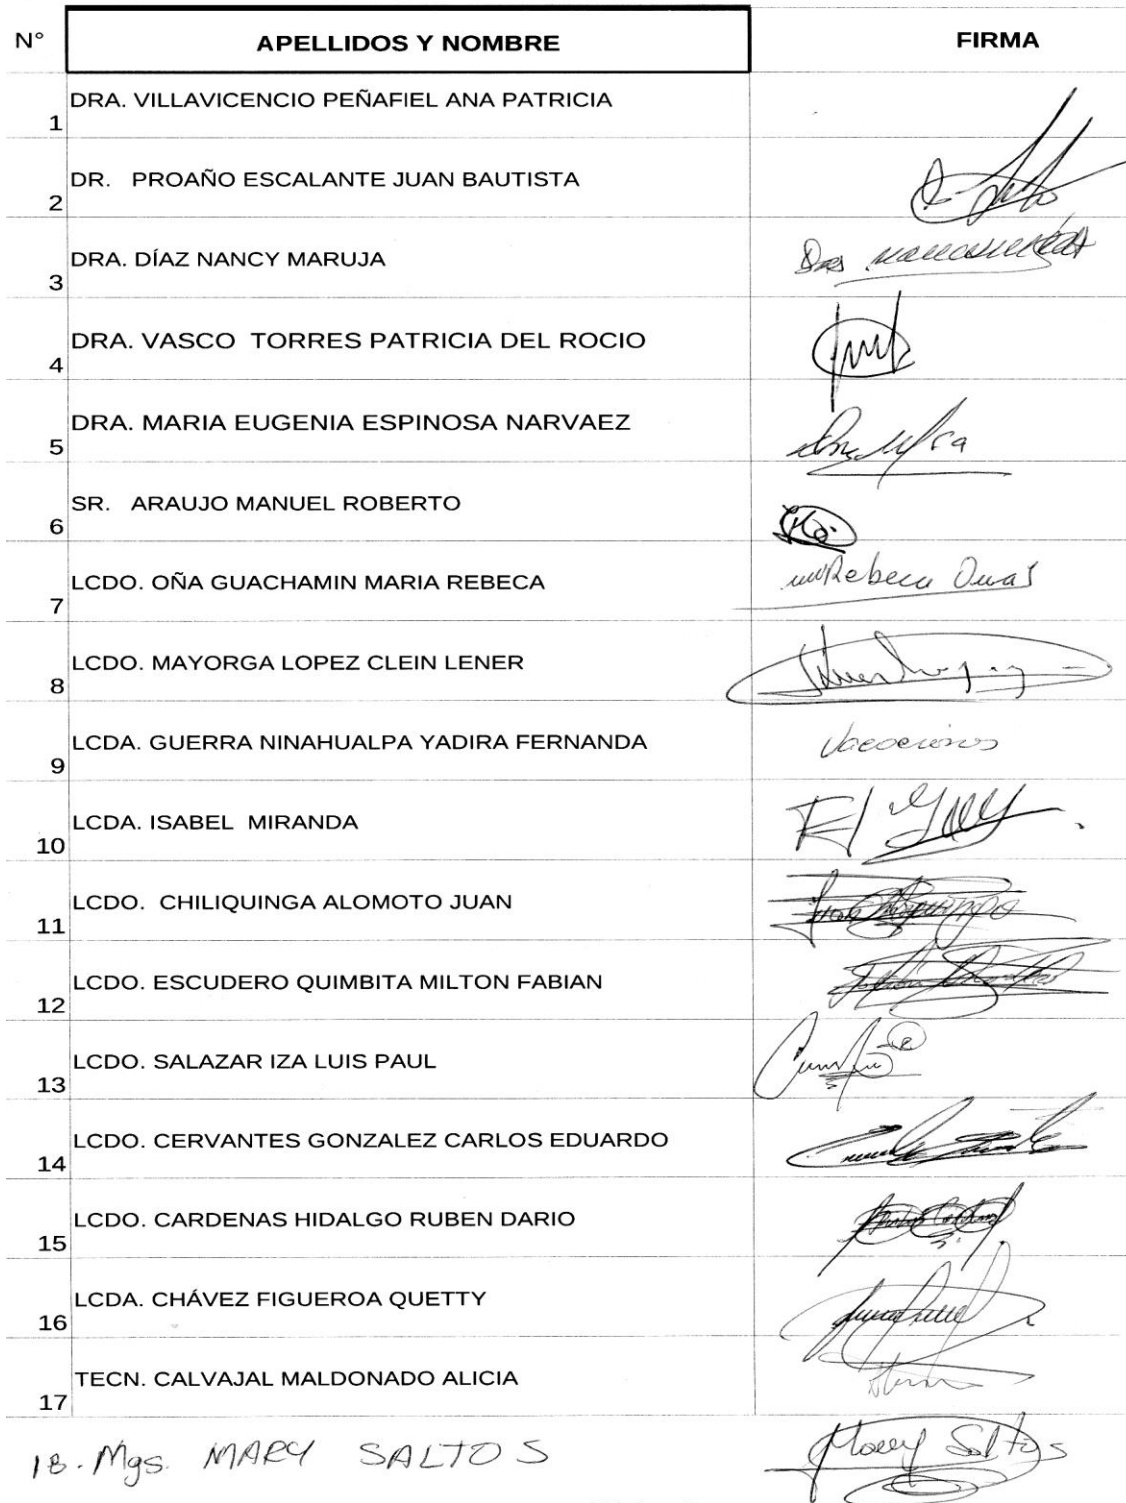 N° APELLIDOS Y NOMBRE FIRMA
1 DRA. VILLAVICENCIO PEÑAFIEL ANA PATRICIA
2 DR. PROAÑO ESCALANTE JUAN BAUTISTA
3 DRA. DÍAZ NANCY MARUJA
4 DRA. VASCO TORRES PATRICIA DEL ROCIO
5 DRA. MARIA EUGENIA ESPINOSA NARVAEZ
6 SR. ARAUJO MANUEL ROBERTO
7 LCDO. OÑA GUACHAMIN MARIA REBECA Rebeca
8 LCDO. MAYORGA LOPEZ CLEIN LENER
9 LCDA. GUERRA NINAHUALPA YADIRA FERNANDA Vacaciones
10 LCDA. ISABEL MIRANDA
11 LCDO. CHILIQUINGA ALOMOTO JUAN
12 LCDO. ESCUDERO QUIMBITA MILTON FABIAN
13 LCDO. SALAZAR IZA LUIS PAUL
14 LCDO. CERVANTES GONZALEZ CARLOS EDUARDO
15 LCDO. CARDENAS HIDALGO RUBEN DARIO
16 LCDA. CHÁVEZ FIGUEROA QUETTY
17 TECN. CALVAJAL MALDONADO ALICIA
18. Mgs. MARY SALTOS Mary Saltos